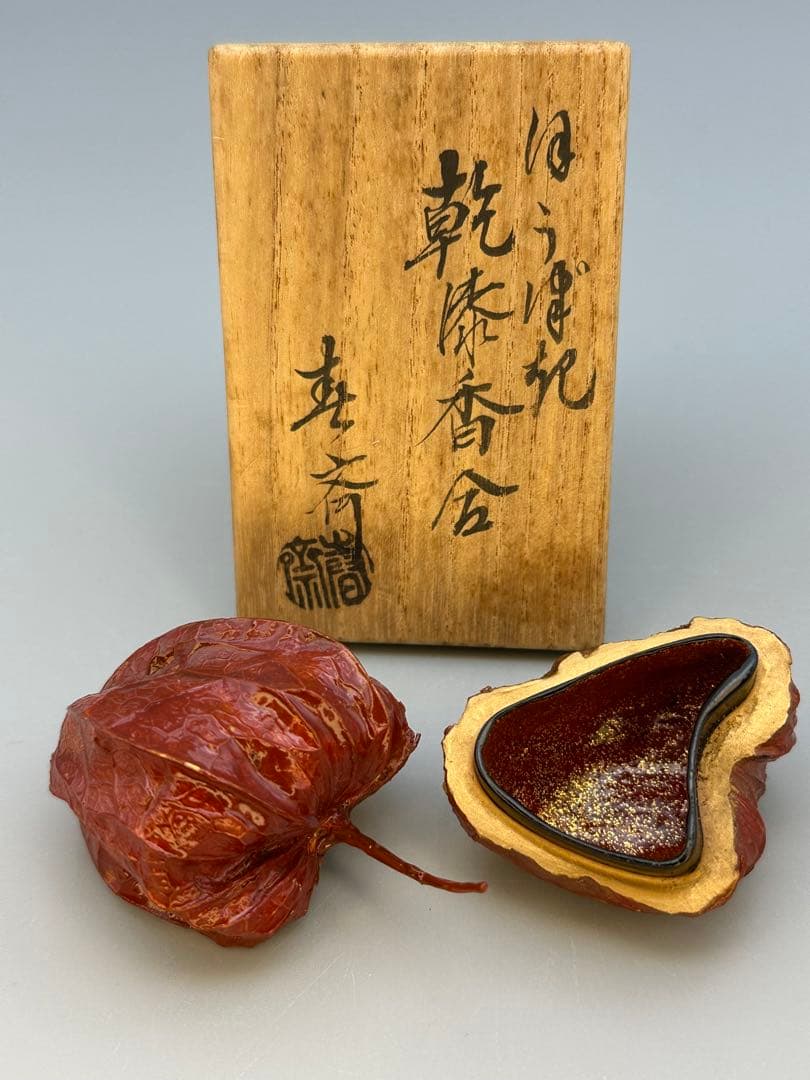 ほうづ紀
乾漆香合
春斎